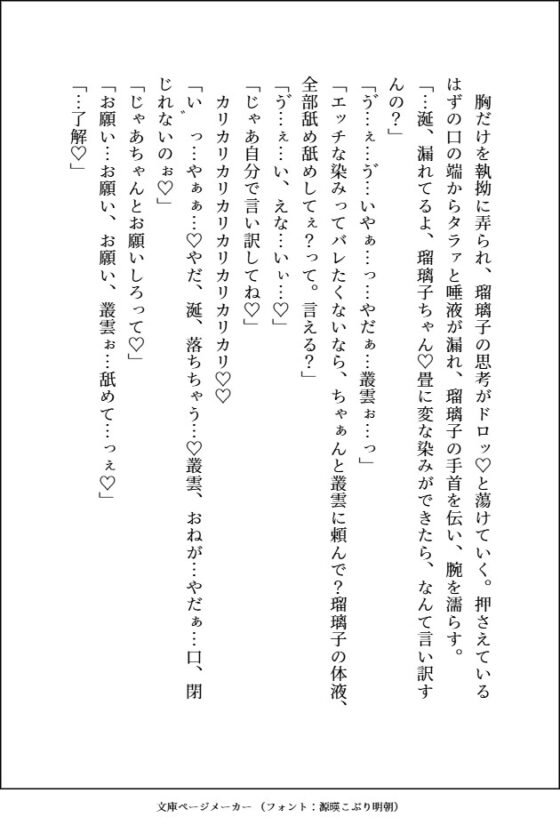 胸だけを執拗に弄られ、瑠璃子の思考がドロッ♡と蕩けていく。押さえている
はずの口の端からタラァと唾液が漏れ、瑠璃子の手首を伝い、腕を濡らす。
「…涎、漏れてるよ、瑠璃子ちゃん♡畳に変な染みができたら、なんて言い訳す
んの？」
「ゔ…ぇ…ゔ…いやぁ…っ…やだぁ…叢雲ぉ…っ」
「エッチな染みってバレたくないなら、ちゃぁんと叢雲に頼んで？瑠璃子の体液、
全部舐め舐めしてぇ？って。言える？」
「ゔ…ぇ…い、えな…いぃ…♡」
「じゃあ自分で言い訳してね♡」
　カリカリカリカリカリカリカリカリ♡♡
「い゛っ…やぁぁ…♡やだ、涎、落ちちゃう…♡叢雲、おねが…やだぁ…口、閉
じれないのぉ♡」
「じゃあちゃんとお願いしろって♡」
「お願い…お願い、お願い、叢雲ぉ…舐めて…っぇ♡」
「…了解♡」
文庫ページメーカー（フォント：源暎こぶり明朝）